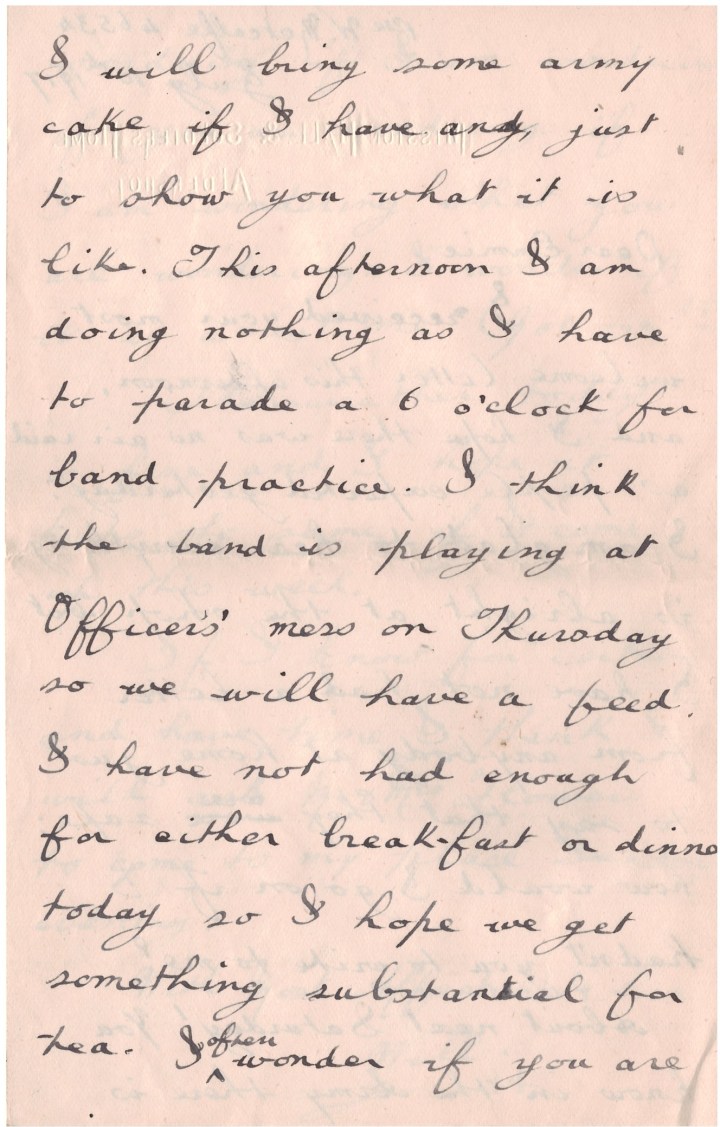 I will bring some army
cake if I have any, just
to show you what it is
like. This afternoon I am
doing nothing as I have
to parade a 6 o'clock for
band practice. I think
the band is playing at
Officers' mess on Thursday
so we will have a feed.
I have not had enough
for either break-fast or dinne
today so I hope we get
something substantial for
tea. I often wonder if you are